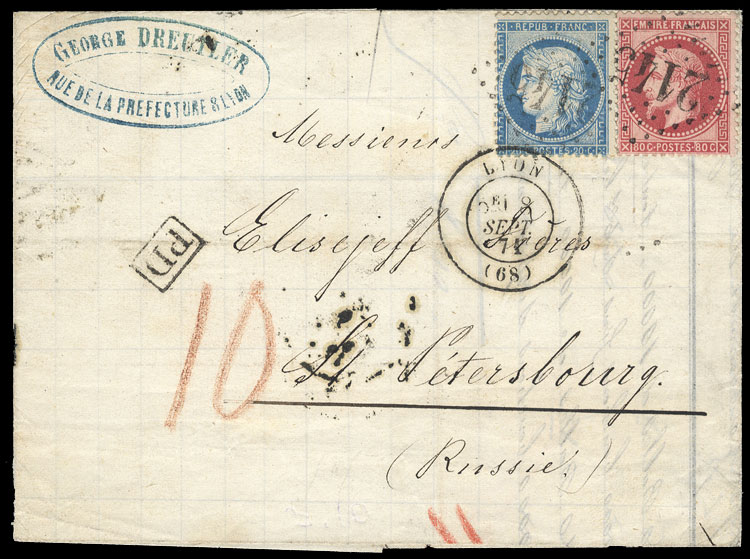 GEORGE DREUTLER
RUE DE LA PREFECTURE 8 LYON
REPUB·FRANC·
POSTES·20·C
EMPIRE FRANÇAIS
80C·POSTES·80C
214
Messieurs
LYON
8
SEPT.
71
(68)
Elisejeff Frères
PD
10
St Pétersbourg.
(Russie.)